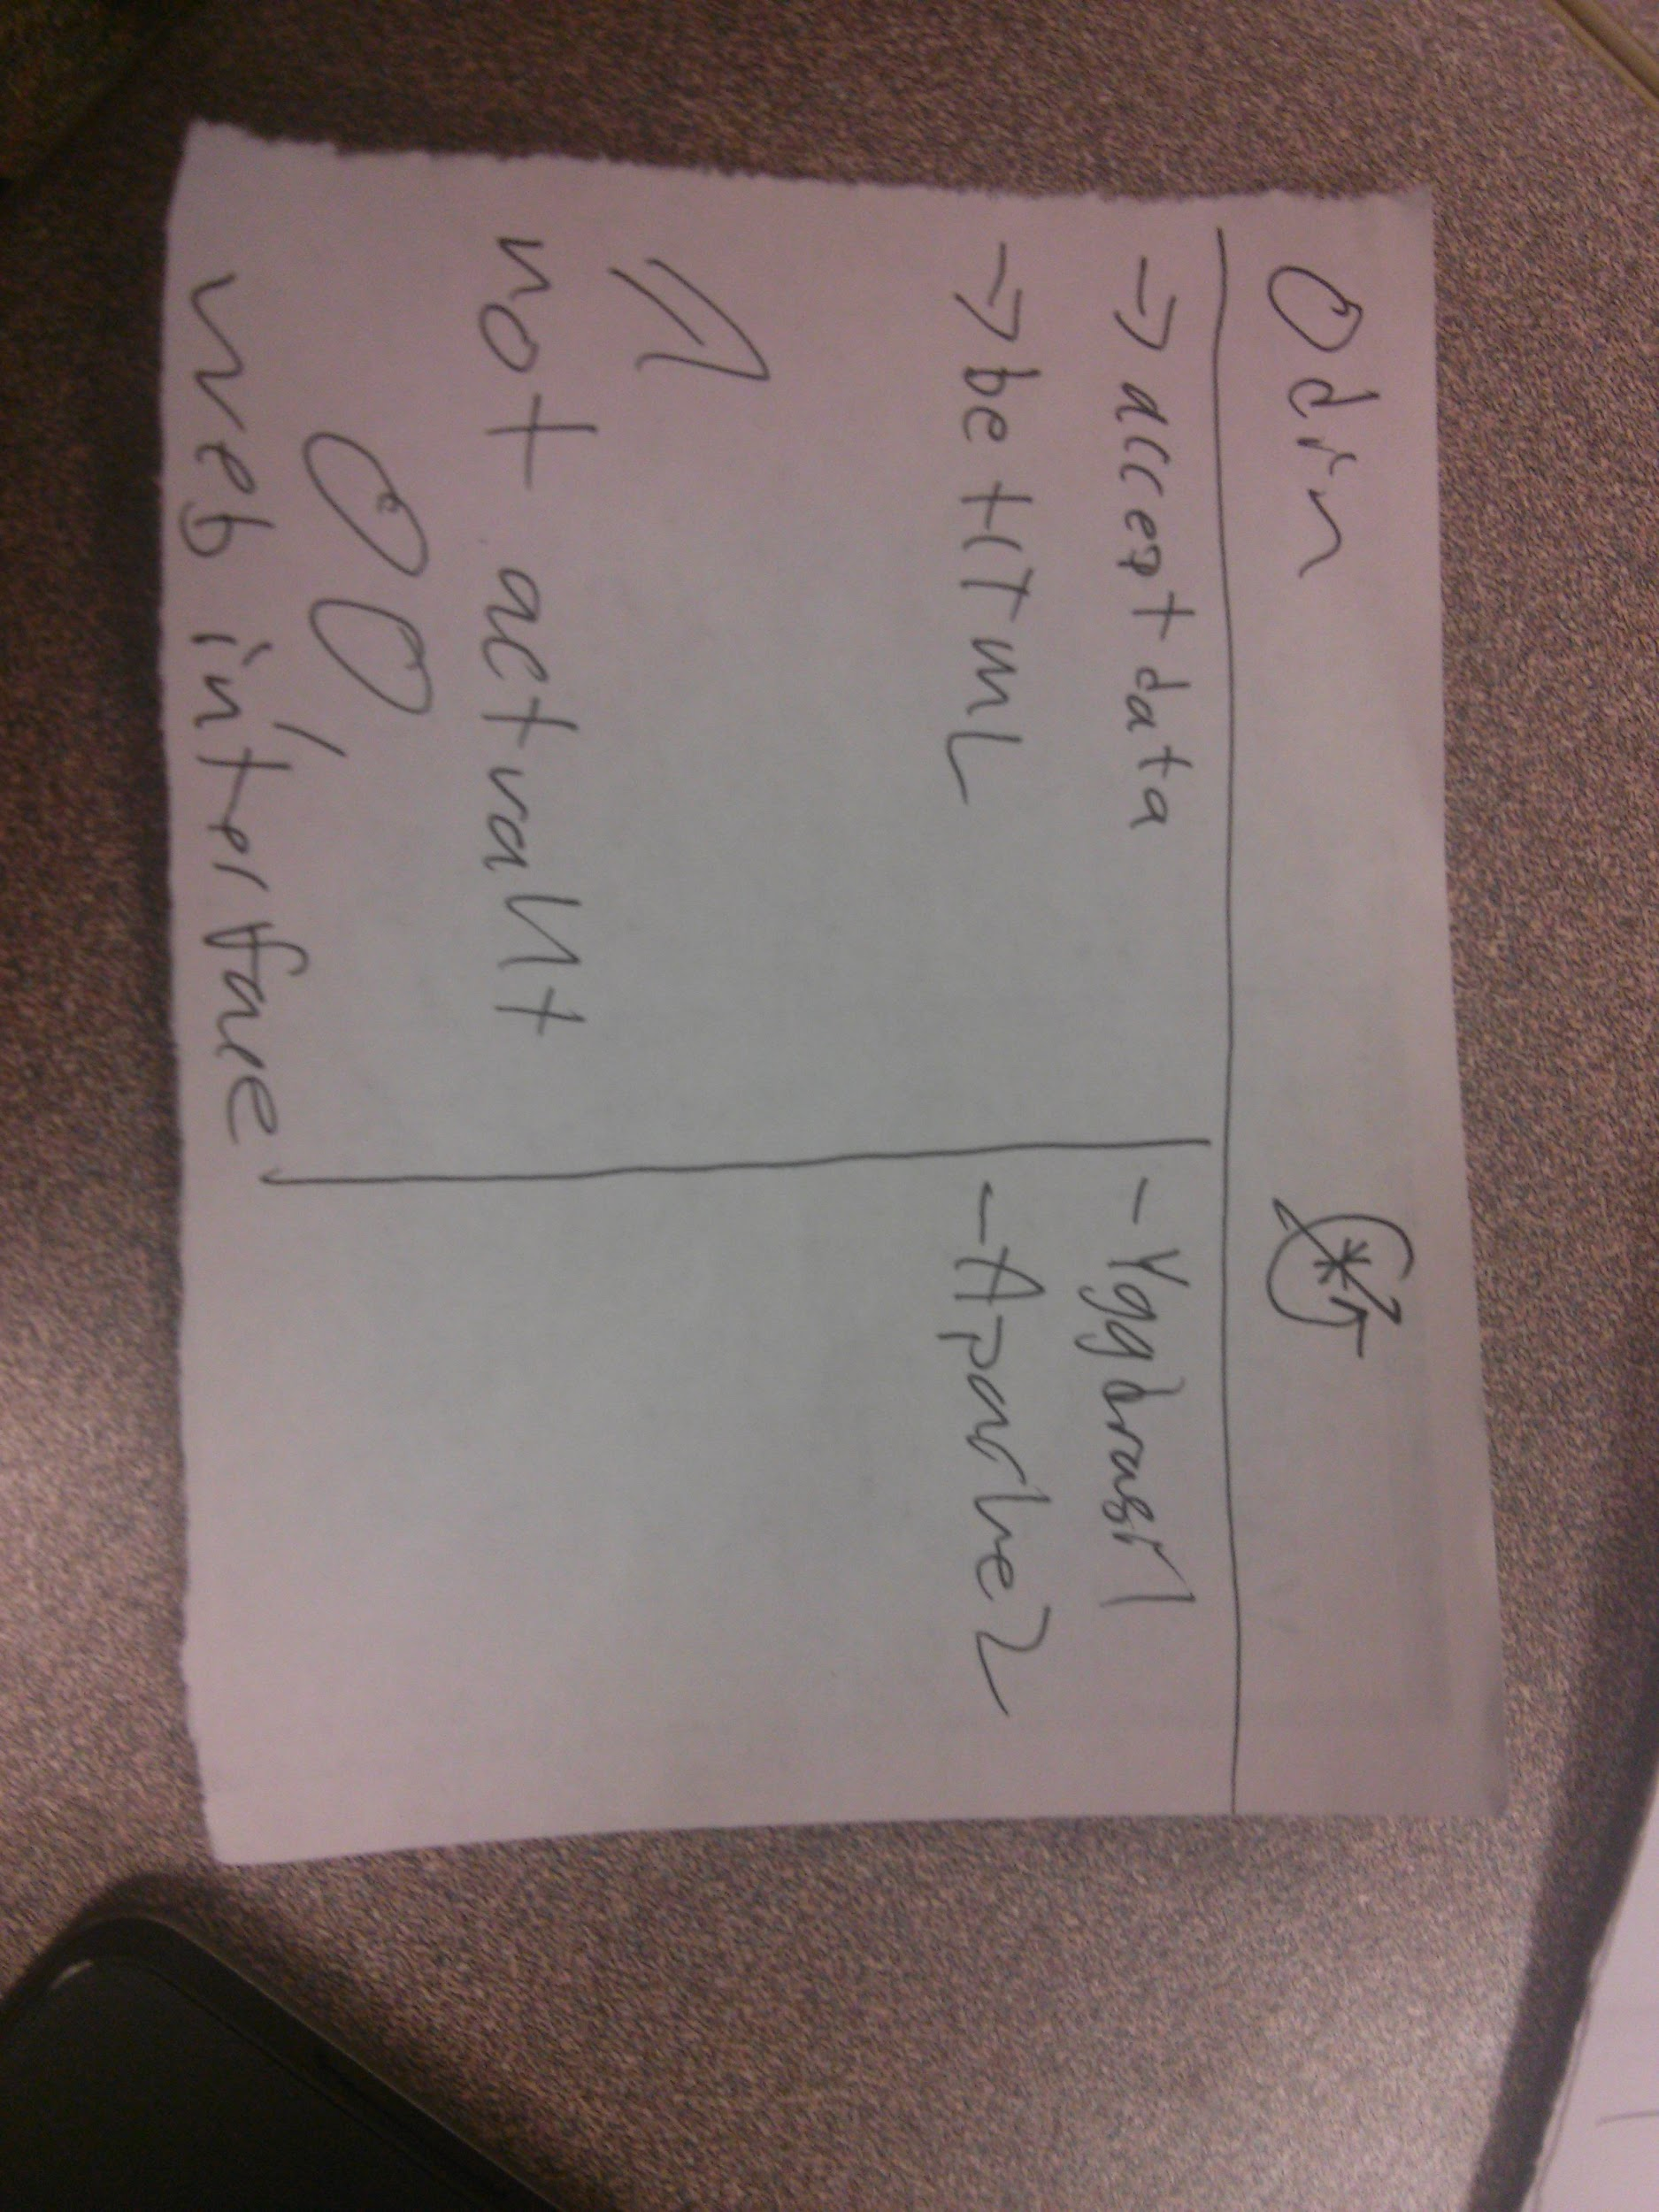 Odin
→ accept data
→ be HTML
not actvalit
web interface
- Yggdrasil
- Apache2